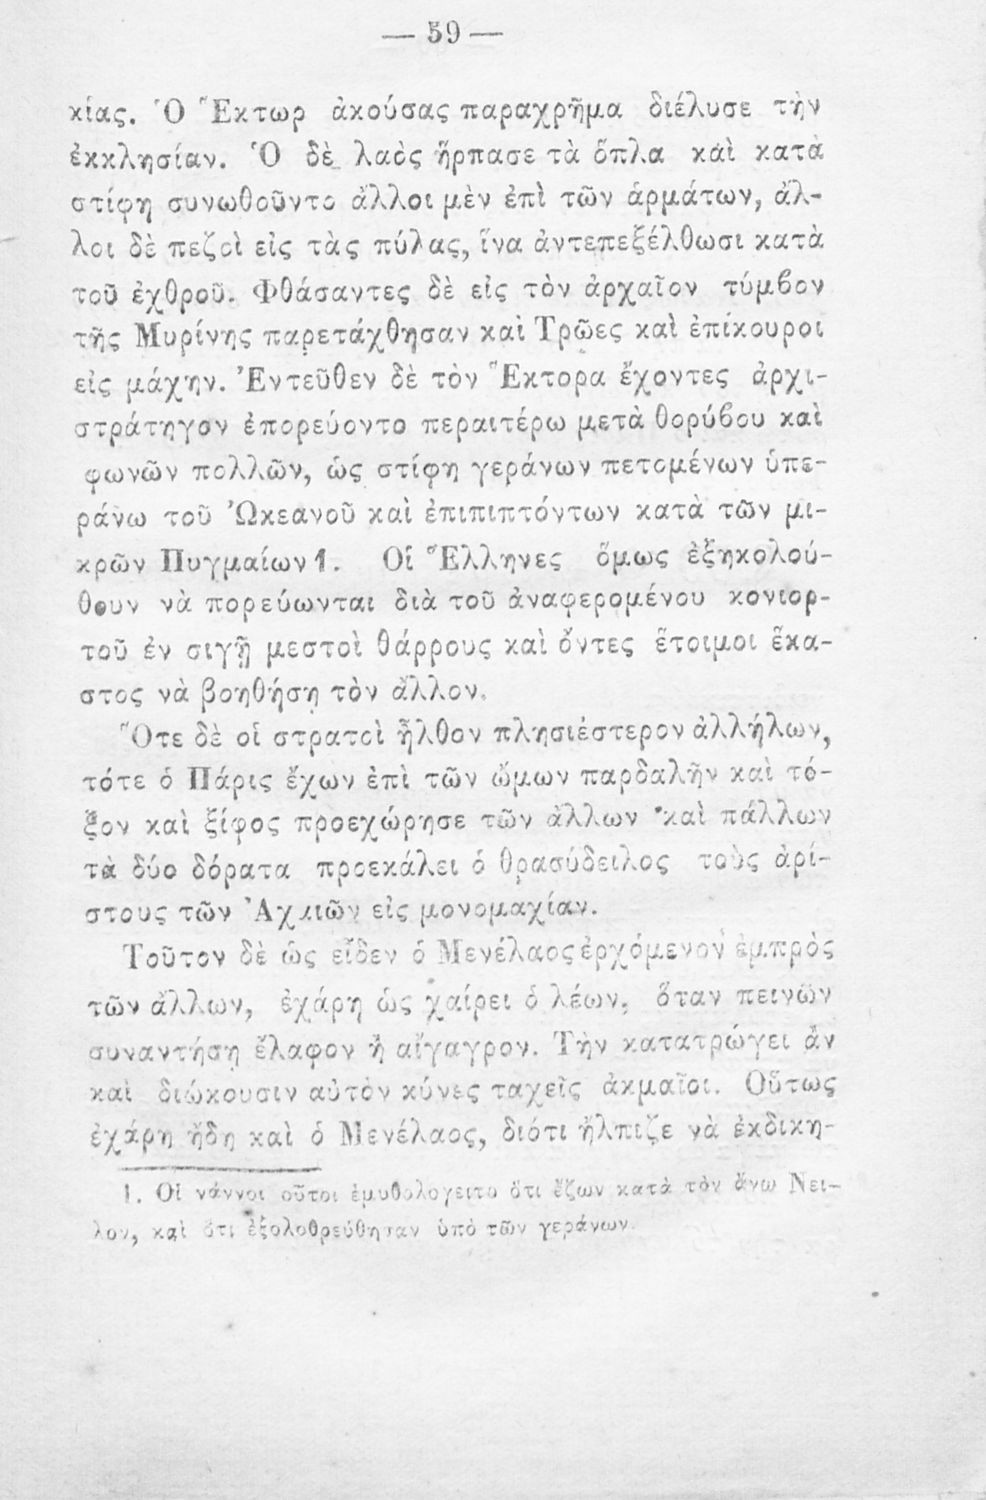 — 59 —
κίας. Ὁ Ἕκτωρ ἀκούσας παραχρῆμα διέλυσε τὴν
ἐκκλησίαν. Ὁ δὲ λαὸς ἥρπασε τὰ ὅπλα καὶ κατὰ
στίφη συνωθοῦντο ἄλλοι μὲν ἐπὶ τῶν ἁρμάτων, ἄλ-
λοι δὲ πεζοὶ εἰς τὰς πύλας, ἵνα ἀντεπεξέλθωσι κατὰ
τοῦ ἐχθροῦ. Φθάσαντες δὲ εἰς τὸν ἀρχαῖον τύμβον
τῆς Μυρίνης παρετάχθησαν καὶ Τρῶες καὶ ἐπίκουροι
εἰς μάχην. Ἐντεῦθεν δὲ τὸν Ἕκτορα ἔχοντες ἀρχι-
στράτηγον ἐπορεύοντο περαιτέρω μετὰ θορύβου καὶ
φωνῶν πολλῶν, ὡς στίφη γεράνων πετομένων ὑπε-
ράνω τοῦ Ὠκεανοῦ καὶ ἐπιπιπτόντων κατὰ τῶν μι-
κρῶν Πυγμαίων 1. Οἱ Ἕλληνες ὅμως ἐξηκολού-
θουν νὰ πορεύωνται διὰ τοῦ ἀναφερομένου κονιορ-
τοῦ ἐν σιγῇ μεστοὶ θάρρους καὶ ὄντες ἕτοιμοι ἕκα-
στος νὰ βοηθήσῃ τὸν ἄλλον.
Ὅτε δὲ οἱ στρατοὶ ἦλθον πλησιέστερον ἀλλήλων,
τότε ὁ Πάρις ἔχων ἐπὶ τῶν ὤμων παρδαλῆν καὶ τό-
ξον καὶ ξίφος προεχώρησε τῶν ἄλλων καὶ πάλλων
τὰ δύο δόρατα προεκάλει ὁ θρασύδειλος τοὺς ἀρί-
στους τῶν Ἀχαιῶν εἰς μονομαχίαν.
Τοῦτον δὲ ὡς εἶδεν ὁ Μενέλαος ἐρχόμενον ἐμπρὸς
τῶν ἄλλων, ἐχάρη ὡς χαίρει ὁ λέων, ὅταν πεινῶν
συναντήσῃ ἔλαφον ἢ αἴγαγρον. Τὴν κατατρώγει ἂν
καὶ διώκουσιν αὐτὸν κύνες ταχεῖς ἀκμαῖοι. Οὕτως
ἐχάρη ἤδη καὶ ὁ Μενέλαος, διότι ἤλπιζε νὰ ἐκδικη-
1. Οἱ νάννοι οὗτοι ἐμυθολογεῖτο ὅτι ἔζων κατὰ τὸν ἄνω Νεῖ-
λον, καὶ ὅτι ἐξολοθρεύθησαν ὑπὸ τῶν γεράνων.